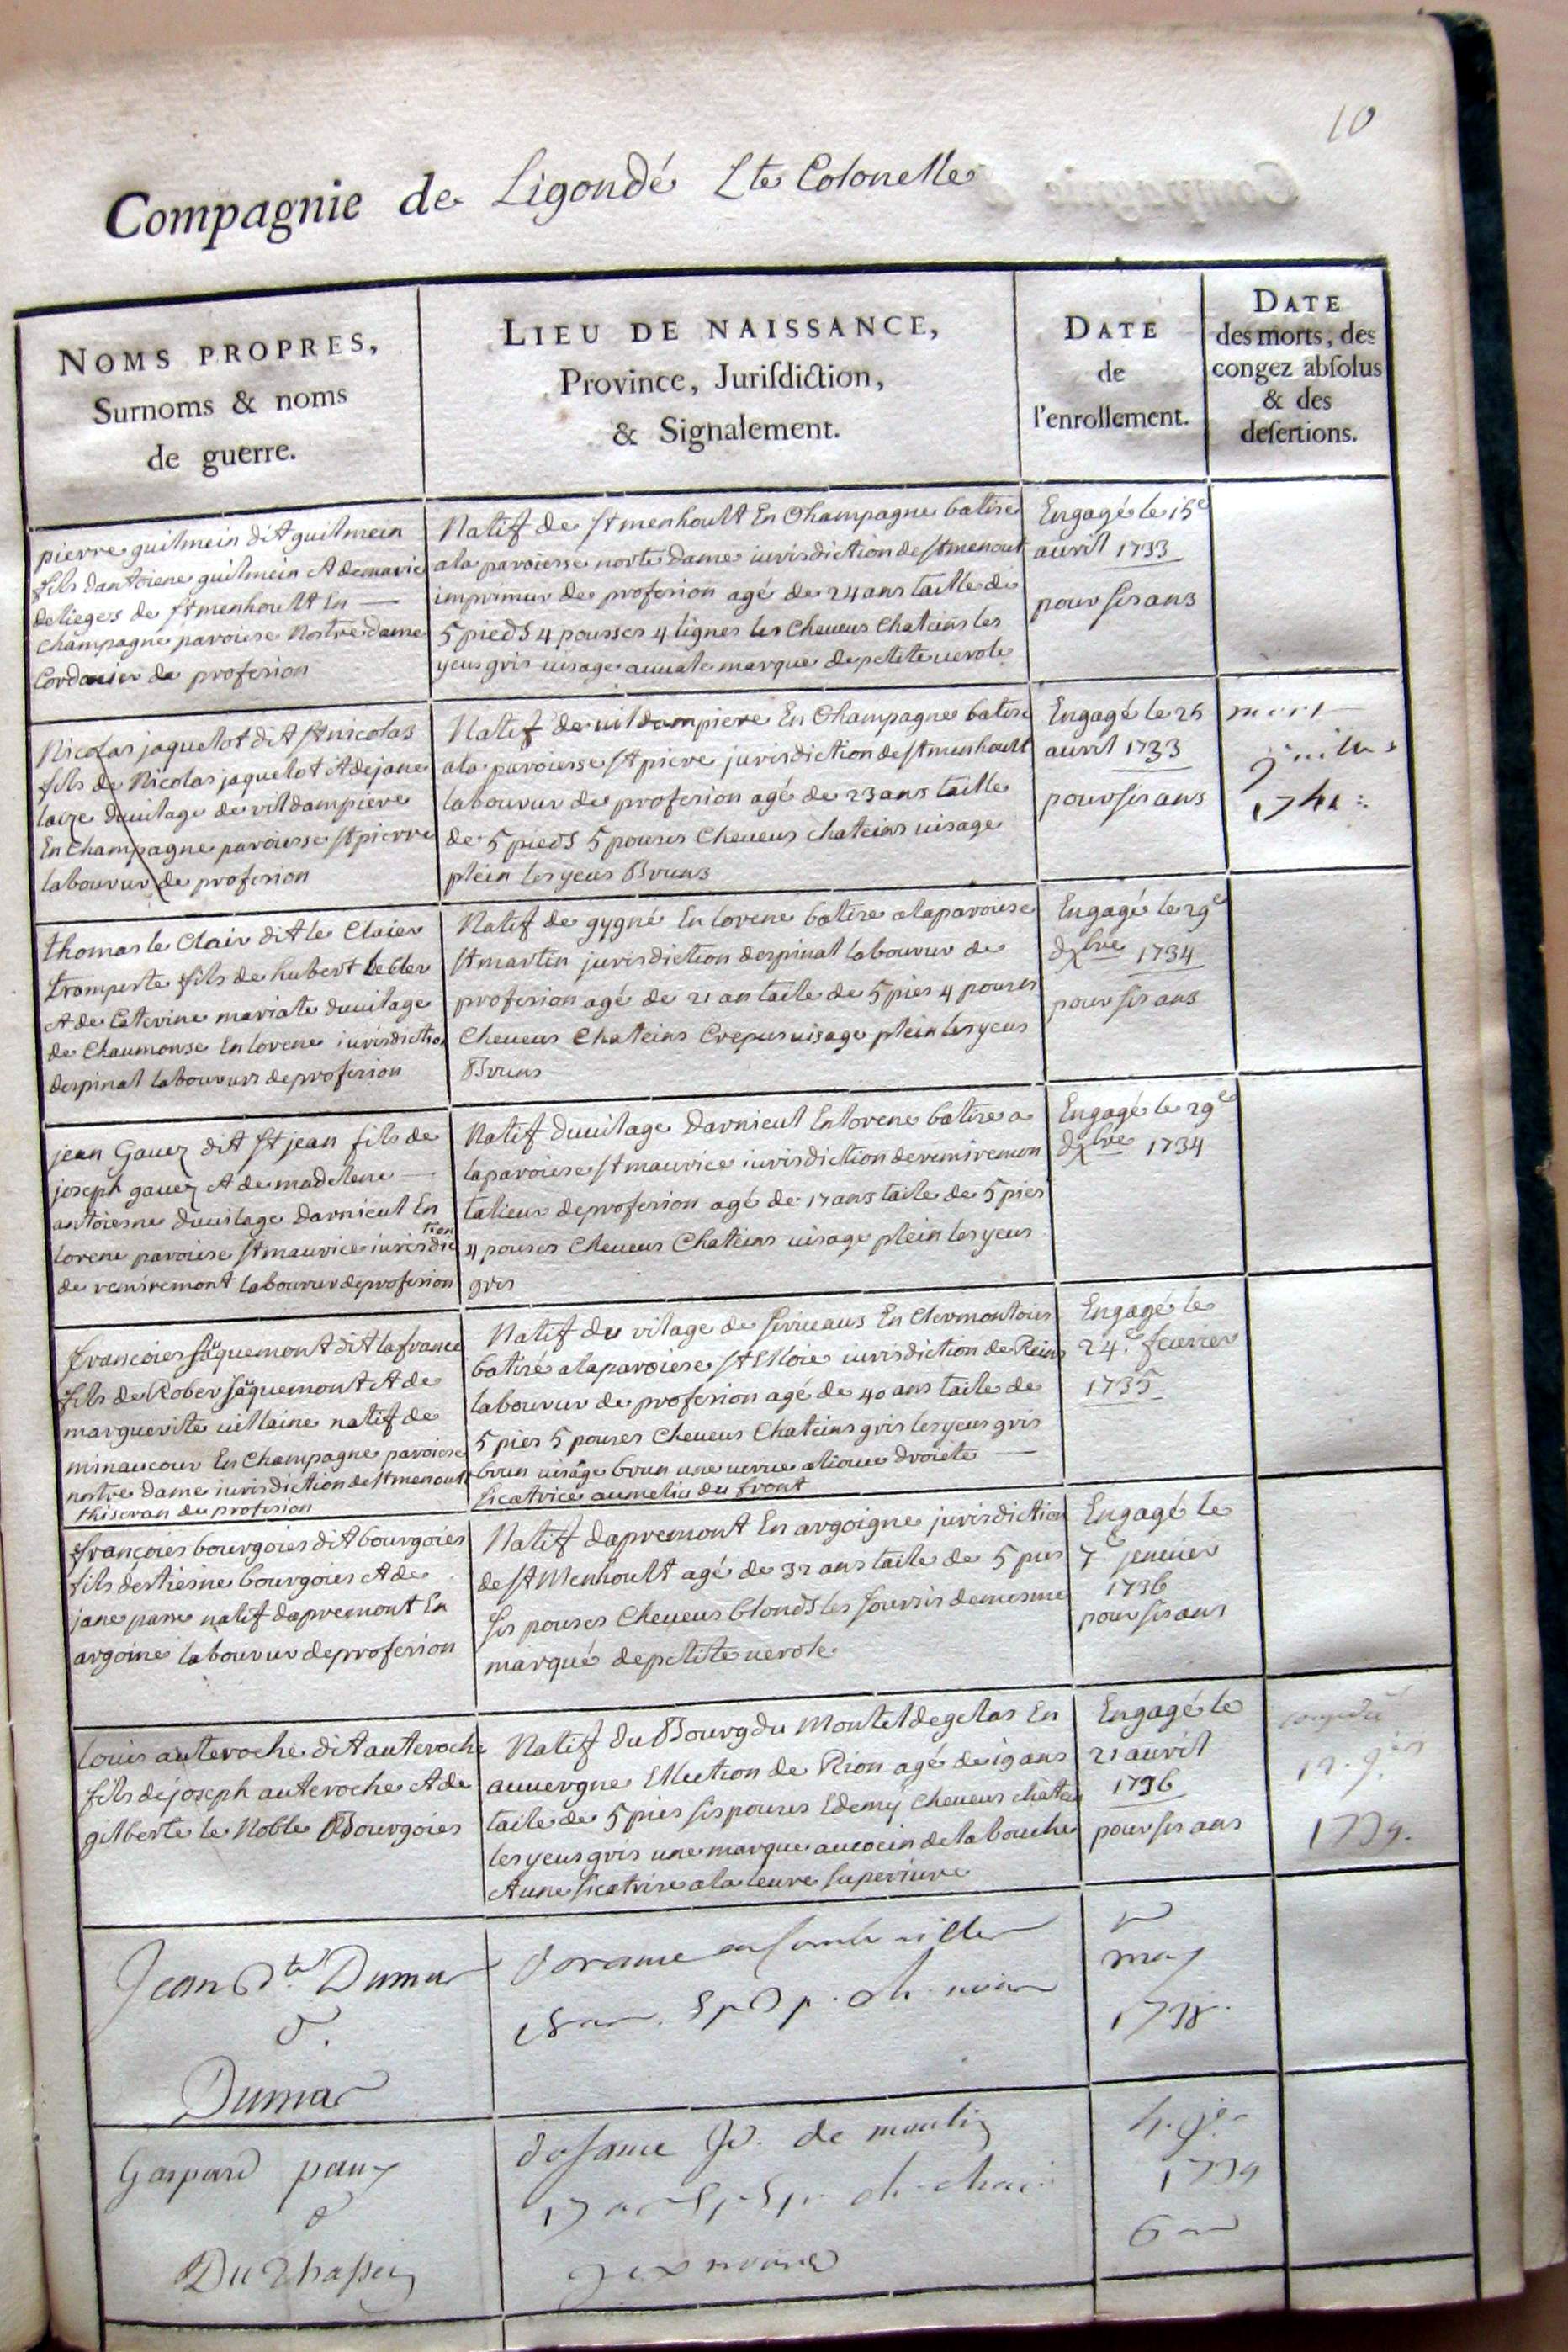 10
Compagnie de Ligondé Lte Colonelle
NOMS PROPRES,
Surnoms & noms
de guerre.
LIEU DE NAISSANCE,
Province, Jurisdiction,
& Signalement.
DATE
de
l'enrollement.
DATE
des morts, des
congez absolus
& des
desertions.
pierre guilmein dit guilmein
fils dantoiene guilmein et demarie
delieges de st menhoult En
champagne paroiese Nostre dame
Cordonier de profesion
Natif de st menhoult En Champagne batise
ala paroiesse norte dame iurisdiction de st menout
imprimur de profesion agé de 24 ans taille de
5 pieds 4 pousses 4 lignes les cheueus chateins les
yeus gris uisage auuale marque depetite uerole
Engagé le 15e
auril 1733
pour sis ans
Nicolas jaquelot dit st nicolas
fils de Nicolas jaquelot et de jane
laize duuilage de vildampiere
En champagne paroiesse st pierre
labourur de profesion
Natif de uildampiere En Champagne batise
ala paroiesse st piere jurisdiction de st menhoult
labourur de profesion agé de 23 ans taille
de 5 pieds 5 pouses cheueus chateins uisage
plein les yeus Bruns
Engagé le 25
auril 1733
pour sis ans
mort
juillet
thomas le Clair dit le Claier
trompeste fils de hubert le Cler
et de Caterine mariate duuilage
de Chaumouse En lorene iurisdiction
despinal labourur de profesion
Natif de gygné En lorene batise ala paroiese
st martin jurisdiction despinal labourur de
profesion agé de 21 an taile de 5 pies 4 pouses
Cheueus Chateins Crepus uisage plein les yeus
Bruns
Engagé le 29e
dxbre 1734
pour sis ans
jean Gauez dit st jean fils de
joseph gauez et de madelene
antoiesne duuilage darnieul En
lorene paroiese st maurice iurisdiction
de remiremont labourur de profesion
Natif duuilage Darnieul En lorene batise a
la paroiese st maurice iurisdiction de remiremon
talieur de profesion agé de 17 ans taile de 5 pies
4 pouses Cheueus Chateins uisage plein les yeus
gris
Engagé le 29e
dxbre 1734
francoies saquemont dit la france
fils de Rober saquemont et de
marguerite uillaine natif de
minaucour En Champagne paroiese
nostre dame iurisdiction de st menoult
thiseran de profesion
Natif du vilage de Ceruieaus En Clermontois
batisé ala paroiese st Eloie iurisdiction de Reins
labourur de profesion agé de 40 ans taile de
5 pies 5 pouses Cheueus Chateins gris les yeus gris
brun uisage brun une uerue alioue droiete
sicatrice aumeliu du front
Engagé le
24e feurier
1735
francoies bourgoies dit bourgoies
fils destiesne bourgoies et de
jane passe natif dapremont En
argoine labourur de profesion
Natif dapremont En argoigne jurisdiction
de st Menhoult agé de 32 ans taile de 5 pies
sis pouses Cheueus blonds les soursis de mesme
marqué de petite uerole
Engagé le
7e jenuier
1736
pour sis ans
louis auteroche dit auteroche
fils de joseph auteroche et de
gilberte le Noble Bourgoies
Natif du Bourg du Montel de gelas En
auuergne Ellection de Rion agé de 19 ans
taile de 5 pies sis pouses Edemy cheueus chatein
les yeus gris une marque aucoein de la bouche
et une sicatrise ala leure superiure
Engagé le
21 auril
1736
pour sis ans
congedié
1739.
Jean Bte Dumas
d.
Dumas
18 ans. 5 p 3 p. ch. noir
may
1738.
Gaspard
d
de moulin
17 ans 5 p 5 p. ch.
yeux noirs
1739
6 ans